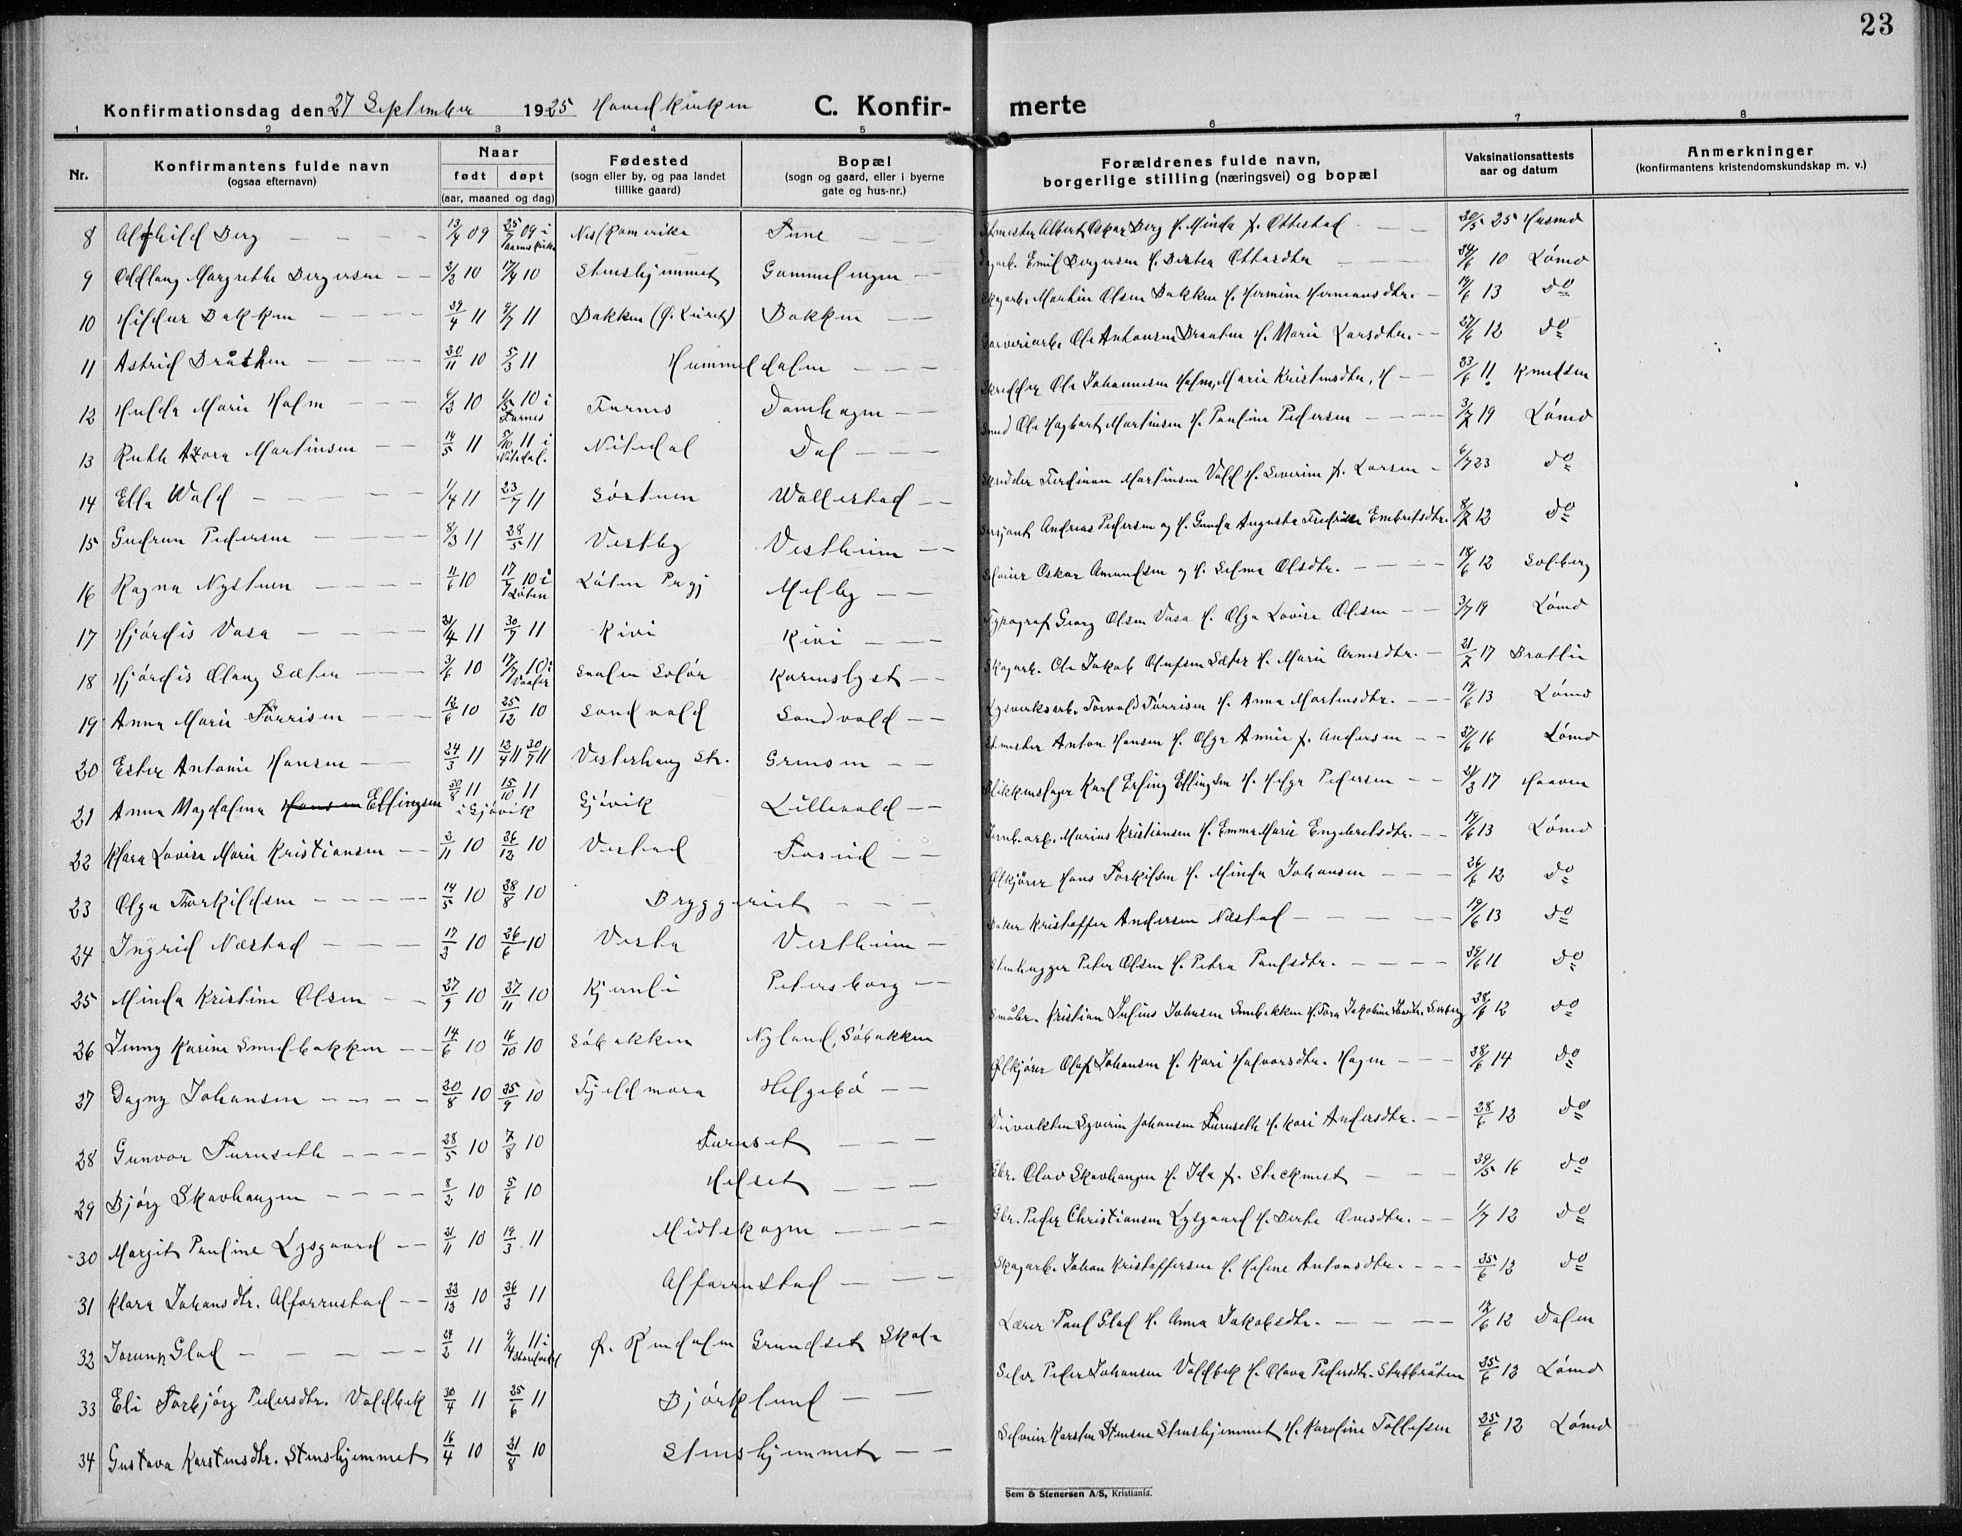 23
Konfirmationsdag den 27 September 1925 Hovedkirken C. Konfir- merte
1 2 3 4 5 6 7 8
Nr. Konfirmantens fulde navn (ogsaa efternavn) Naar født døpt (aar, maaned og dag) Fødested (sogn eller by, og paa landet tillike gaard) Bopæl (sogn og gaard, eller i byerne gate og hus-nr.) Forældrenes fulde navn, borgerlige stilling (næringsvei) og bopæl Vaksinationsattests aar og datum Anmerkninger (konfirmantens kristendomskundskap m. v.)
8 Alfhild Berg 13/4 09 25/7 09 i Nes Romerike Tune Albert Oskar Berg H. Minda f. Ottestad 20/5 25
9 Oddlaug Margrethe Bergersen 2/2 10 17/4 10 Stenshjemmet Gammelengen Emil Bergersen H. Berthea Ottosdtr. 24/6 10 Lømo
10 Hildur Bakken 29/4 11 9/7 11 Bakken Bakken Skogarb. Martin Olsen Bakken H. Hermine Hermansdtr. 19/6 13 do
11 Astrid Bråthen 30/11 10 5/3 11 Hummeldalen Ole Antonsen Braaten H. Marie Larsdtr. 27/6 12 do
12 Hulda Marie Holm 6/3 10 1/5 10 i Furnes Furnes Domhagen Skredder Ole Johannesen Holm, Marie Kristensdtr, H 23/6 11 Knutsen
13 Ruth Azora Martinsen 14/5 11 5/10 11 i Nitedal. Nitedal Dal Smed Ole Hagbart Martinsen H. Pauline Pedersen 3/7 19 Lømo
14 Ella Wold 1/4 11 23/7 11 Sørtuen Wollestad Skredder Ferdinan Martinsen Vold H. Severine f. Larsen 6/7 23 do
15 Gudrun Pedersen 8/3 11 28/5 11 Vestby Vestheim Sersjant Andreas Pedersen og H. Gunda Augusta Fredrikke Embretsdtr. 8/7 12 do
16 Ragna Nystuen 11/6 10 17/7 10 i Løten Løten Prgj Melby Oskar Amundsen og H. Selma Olsdtr. 18/6 12 Solberg
17 Hjørdis Vasa 21/4 11 30/7 11 Kivi Kivi Typograf Georg Olsen Vasa H. Olga Lovise Olsen 3/7 19 Lømo
18 Hjørdis Olaug Sæter 3/6 10 17/7 10 i Vaaler Vaaler Solør Karenslyst Skogarb. Ole Jakob Olufsen Sæter H. Marie Arnesdtr. 21/7 17 Bratlie
19 Anna Marie Tørrisen 12/6 10 25/12 10 Sandvold Sandvold Torvald Tørrisen H. Anna Martensdtr. 19/6 13 Lømo
20 Ester Antonie Hansen 24/3 11 12/4 11 30/7 11 Vesterhaug St. Grensen Anton Hansen H. Olga Annie f. Andersen 27/6 16 Lømo
21 Anna Magdalena Hansen Ellingsen 20/8 11 15/10 11 i Gjøvik Gjøvik Lillevold Blikkenslager Karl Erling Ellingsen H. Helga Pedersen 21/3 17 Haaven
22 Klara Lovise Marie Kristiansen 3/11 10 26/12 10 Vestad Foseid Jernb.arb. Marius Kristiansen H. Emma Marie Engebretsdtr. 19/6 13 Lømo
23 Olga Thorkildsen 14/5 10 28/8 10 Bryggeriet Ølkjører Hans Torkilsen H. Minda Johansen 26/6 12 do
24 Ingrid Næstad 17/3 10 26/6 10 Vesta Vestheim Baker Kristoffer Andersen Næstad 19/6 13 do
25 Minda Kristine Olsen 27/9 10 27/11 10 Kjernli Petersborg Stenhugger Peter Olsen H. Petra Paulsdtr. 29/6 11 do
26 Jenny Karine Smedbakken 14/6 10 16/10 10 Søbakken Nyland, Søbakken Småbr. Kristian Julius Johnsen 28/6 12 do
27 Dagny Johansen 30/8 10 25/9 10 Fjeldmora Helgebø Ølkjører Olaf Johansen H. Kari Halvorsdtr. Hagen 28/6 14 do
28 Gunvor Furuseth 28/5 10 7/8 10 Furuset Veivokteren Syverin Johansen Furuseth H. Kari Andersdtr. 28/6 12 do
29 Bjørg Skavhaugen 8/2 10 5/6 10 Helset Gbr. Olav Skavhaugen H. Ida f. Steckmest 29/5 16 do
30 Margit Pauline Lysgaard 21/11 10 19/3 11 Midtskogen Gbr. Peder Christiansen Lysgaard H. Berthe Evensdtr. 1/7 12 do
31 Klara Johansdtr. Alfarrustad 23/12 10 26/3 11 Alfarrustad Skogarb. Johan Kristoffersen H. Helene Antonsdtr. 25/6 13 do
32 Jorunn Glad 24/2 11 9/4 11 i Ø. Rendalen Grundset Skole Lærer Paul Glad H. Anna Jakobsdtr. 12/6 12 Dalen
33 Eli Torbjørg Pedersdtr. Voldbek 30/4 11 25/6 11 Bjørklund Selv. Peder Johansen Voldbek H. Olava Pedersdtr. Stubbråten 25/6 13 Lømo
34 Gustava Karstensdtr. Stenshjemmet 16/4 10 21/8 10 Stenshjemmet Selveier Karsten Stensen Stenshjemmet H. Karoline Tollefsen 25/6 12 Lømo
Sem & Stenersen A/S, Kristiania.